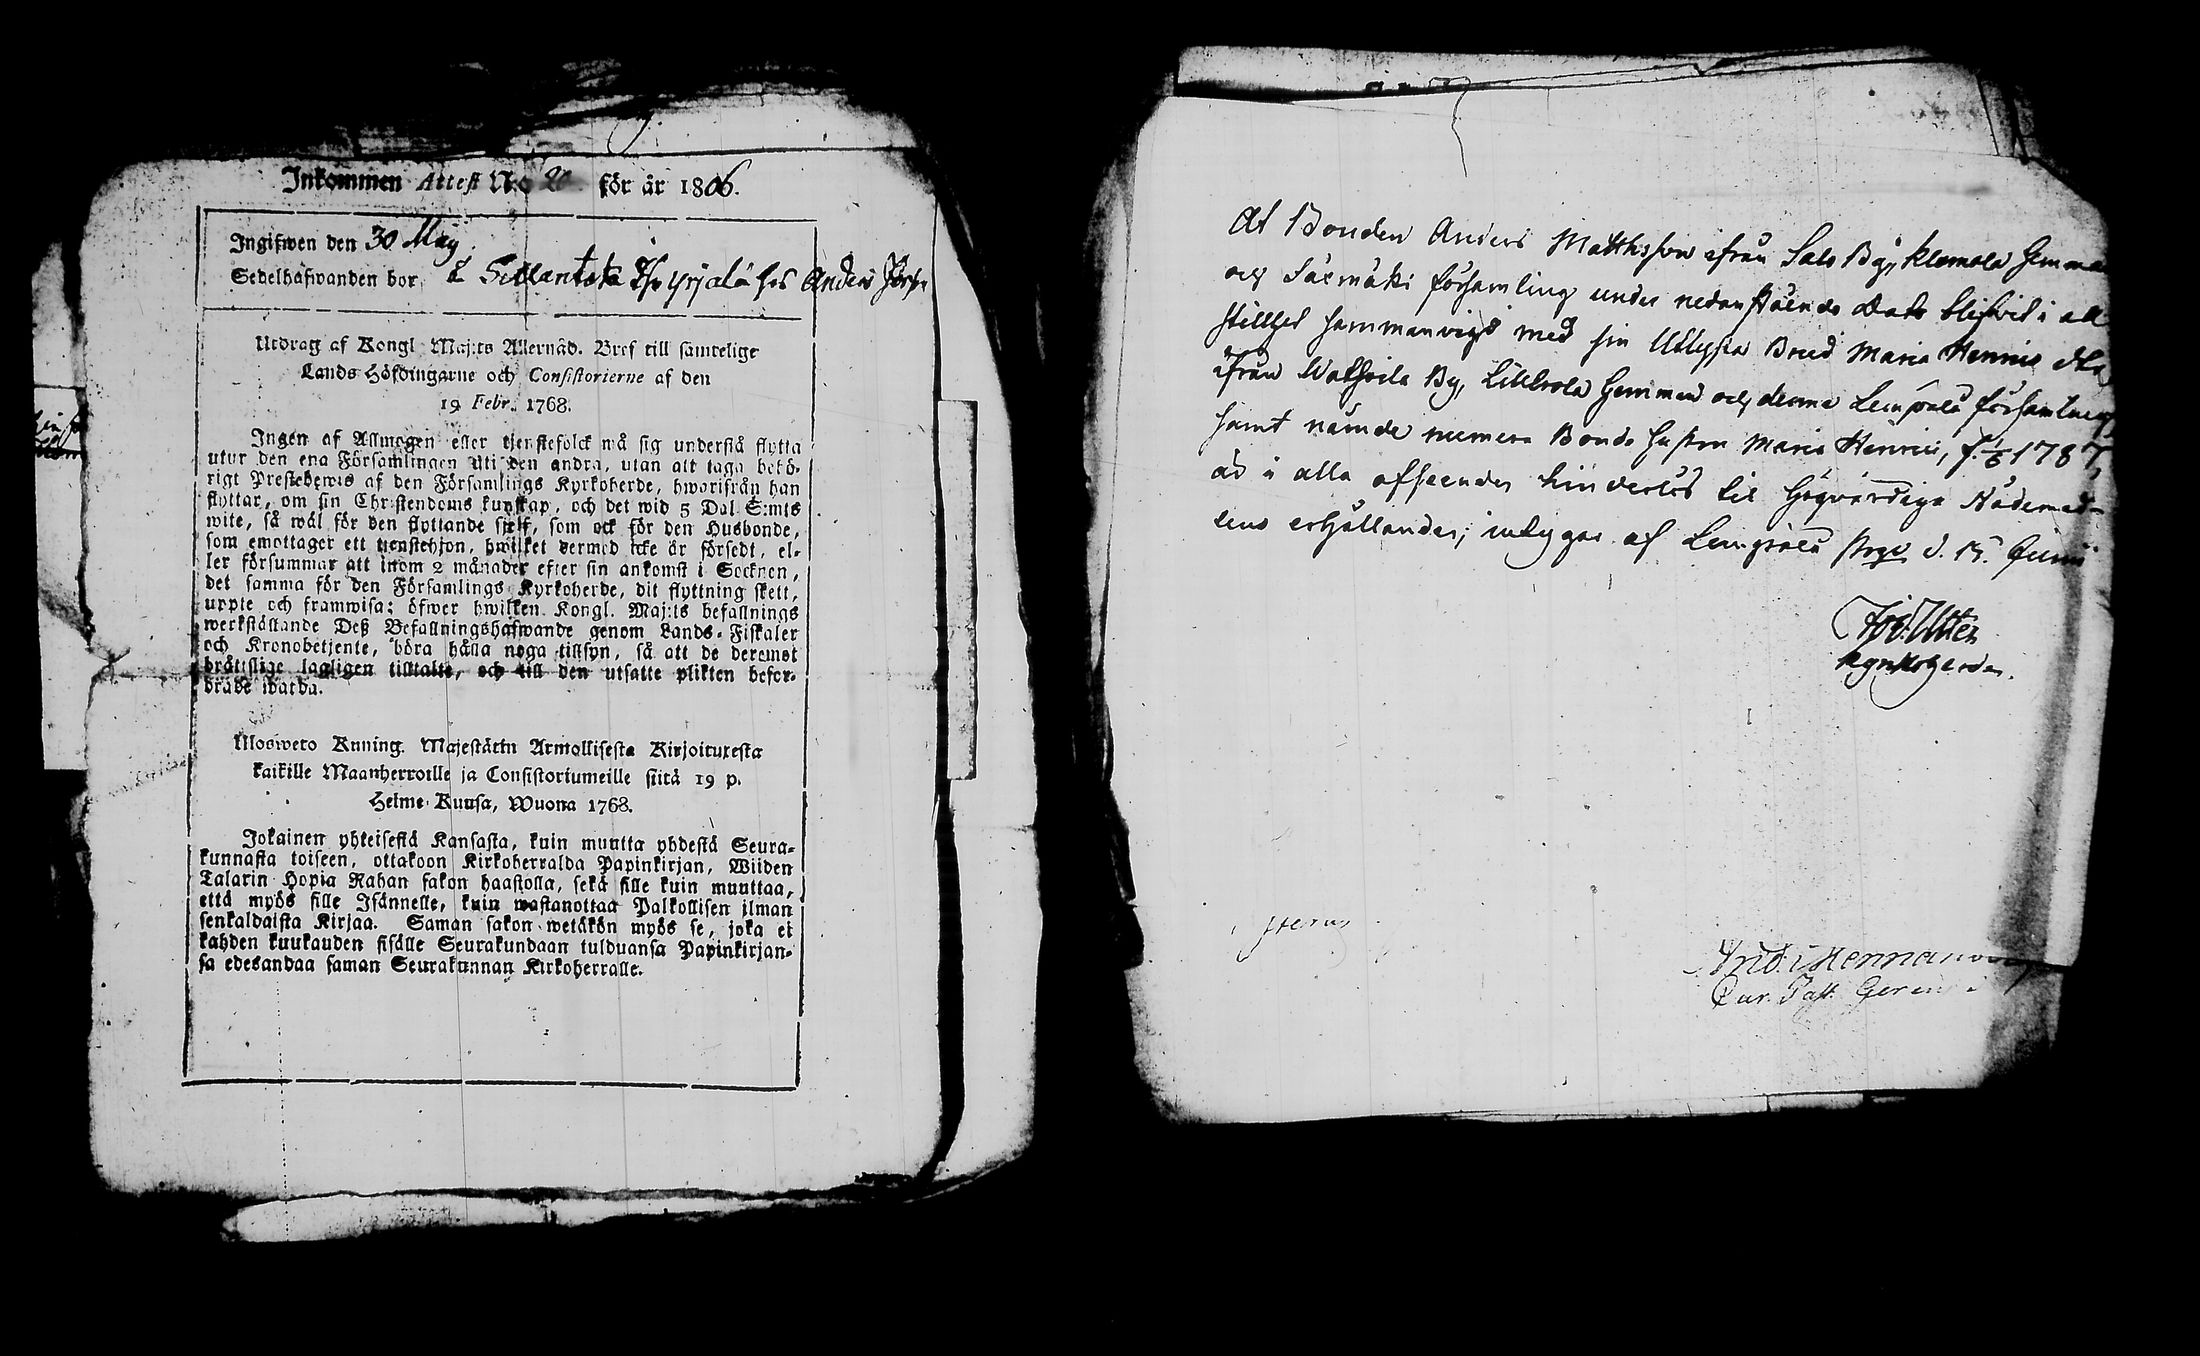 Inkommen Attest N:o 20 för år 1806.
Ingifwen den 30 Maij.
Sedelhafwanden bor i Sillantaka By Yrjälä hos Anders
Utdrag af Kongl. Maj:ts Allernåd. Bref till samtelige
Lands Höfdingarne och Consistorierne af den
19 Febr. 1768.
Ingen af Allmogen eller tjenstefolck må sig understå flytta
utur den ena Församlingen uti den andra, utan att taga behö-
rigt Prestebewis af den Församlings Kyrkoherde, hwarifrån han
flyttar, om sin Christendoms kunskap, och det wid 5 Dal. S:mts
wite, så wäl för den flyttande sjelf, som ock för den Husbonde,
som emottager ett tienstehjon, hwilket dermed icke är försedt, el-
ler försummar att inom 2 månader efter sin ankomst i Socknen,
det samma för den Församlings Kyrkoherde, dit flyttning skett,
uppte och framwisa; öfwer hwilken Kongl. Maj:ts befallnings
werkställande Deß Befallningshafwande genom Lands-Fiskaler
och Kronobetjente, böra hålla noga tillsyn, så att de deremot
bråttslige lagligen tilltalte, och till den utsatte plikten befor-
drade warda.
Ulosweto Kuning. Majestätin Armollisesta Kirjoituxesta
kaikille Maanherroille ja Consistoriumeille siitä 19 p.
Helme-Kuusa, Wuona 1768.
Jokainen yhteisestä Kansasta, kuin muutta yhdestä Seura-
kunnasta toiseen, ottakoon Kirkoherralda Papinkirjan, Wiiden
Talarin Hopia Rahan sakon haastolla, sekä sille kuin muuttaa,
että myös sille Isännelle, kuin wastanottaa Palkollisen ilman
senkaldaista Kirjaa. Saman sakon wetäkön myös se, joka ei
kahden kuukauden sisälle Seurakundaan tulduansa Papinkirjan-
sa edesandaa saman Seurakunnan Kirkoherralle.
At Bonden Anders Matthsson ifrån Salo By, Klemola Hemman
och Säxmäki församling under nedanstående Dato blifwit i all
stillhet sammanvigd med sin Utlysta Brud Maria Henrics dtr
ifrån Watheila By, Lillkola Hemman och denna Lempälä församling,
samt nämde numera Bonde hustru Maria Henrics, f. 1/6 1787,
är i alla afseenden hinderlös til Högvärdiga Nådemed-
lens erhållande; intygar af Lempälä Prgd d. 15. Junii
Kyrkoherde.
And: Hermanni
Cur. Past. Gerens